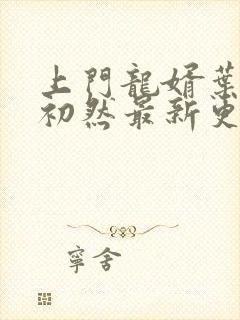 上門龍婿葉
初然最新更
寧舍